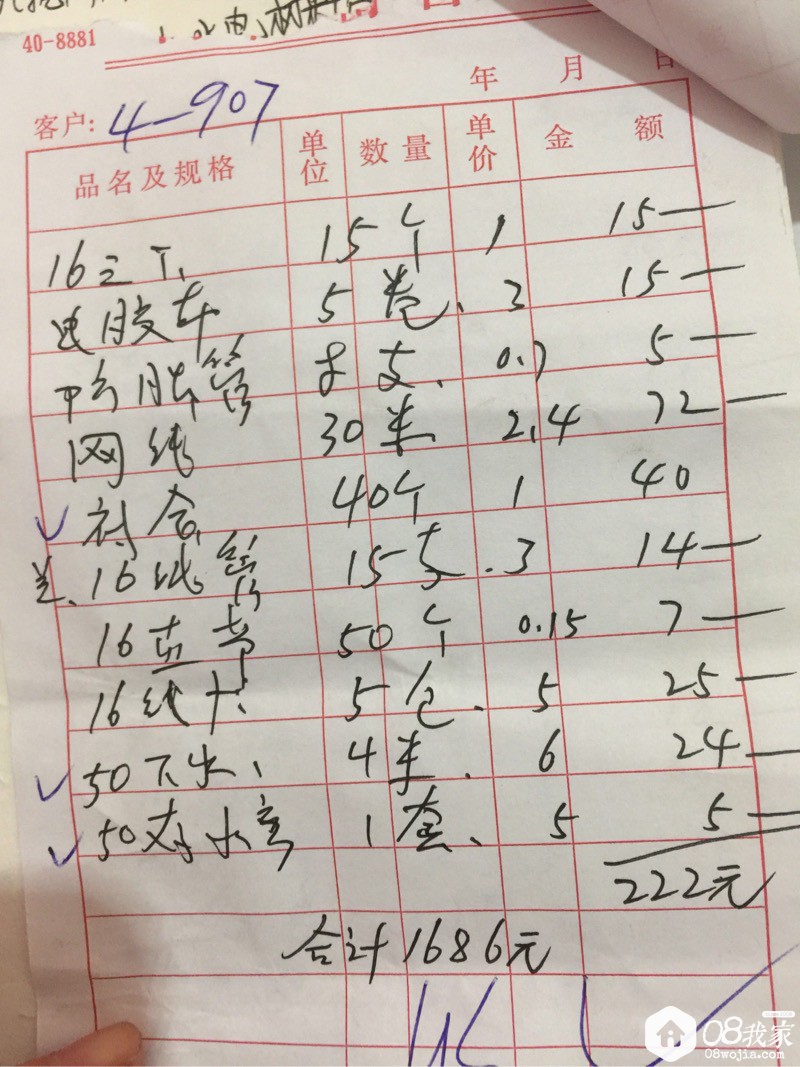 40-8881
年 月 日
客户: 4-907
品名及规格 单位 数量 单价 金额
16三丁、 15个 1 15—
电胶布 5卷、 3 15—
支、 0.7 5—
网线 30米 2.4 72—
40个 1 40
16线管 15支 .3 14—
16直 50个 0.15 7—
16线卡 5包、 5 25—
50下水、 4米、 6 24—
50存水弯 1套、 5 5—
222元
合计1686元
08我家
08wojia.com